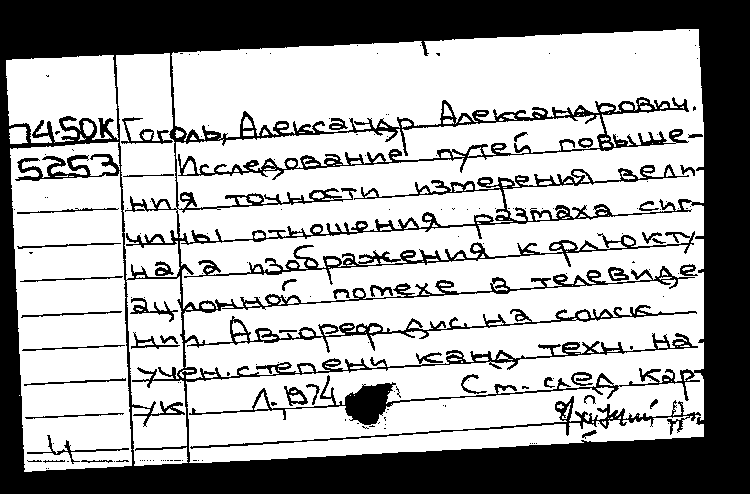 74-50К Гоголь, Александр Александрович.
5253 Исследование путей повыше-
ния точности измерения вели-
чины отношения размаха сиг-
нала изображения к флюкту-
ационной помехе в телевиде-
нии. Автореф. дис. на соиск.
учен. степени канд. техн. на-
ук. Л., 1974. См. след. карт
4